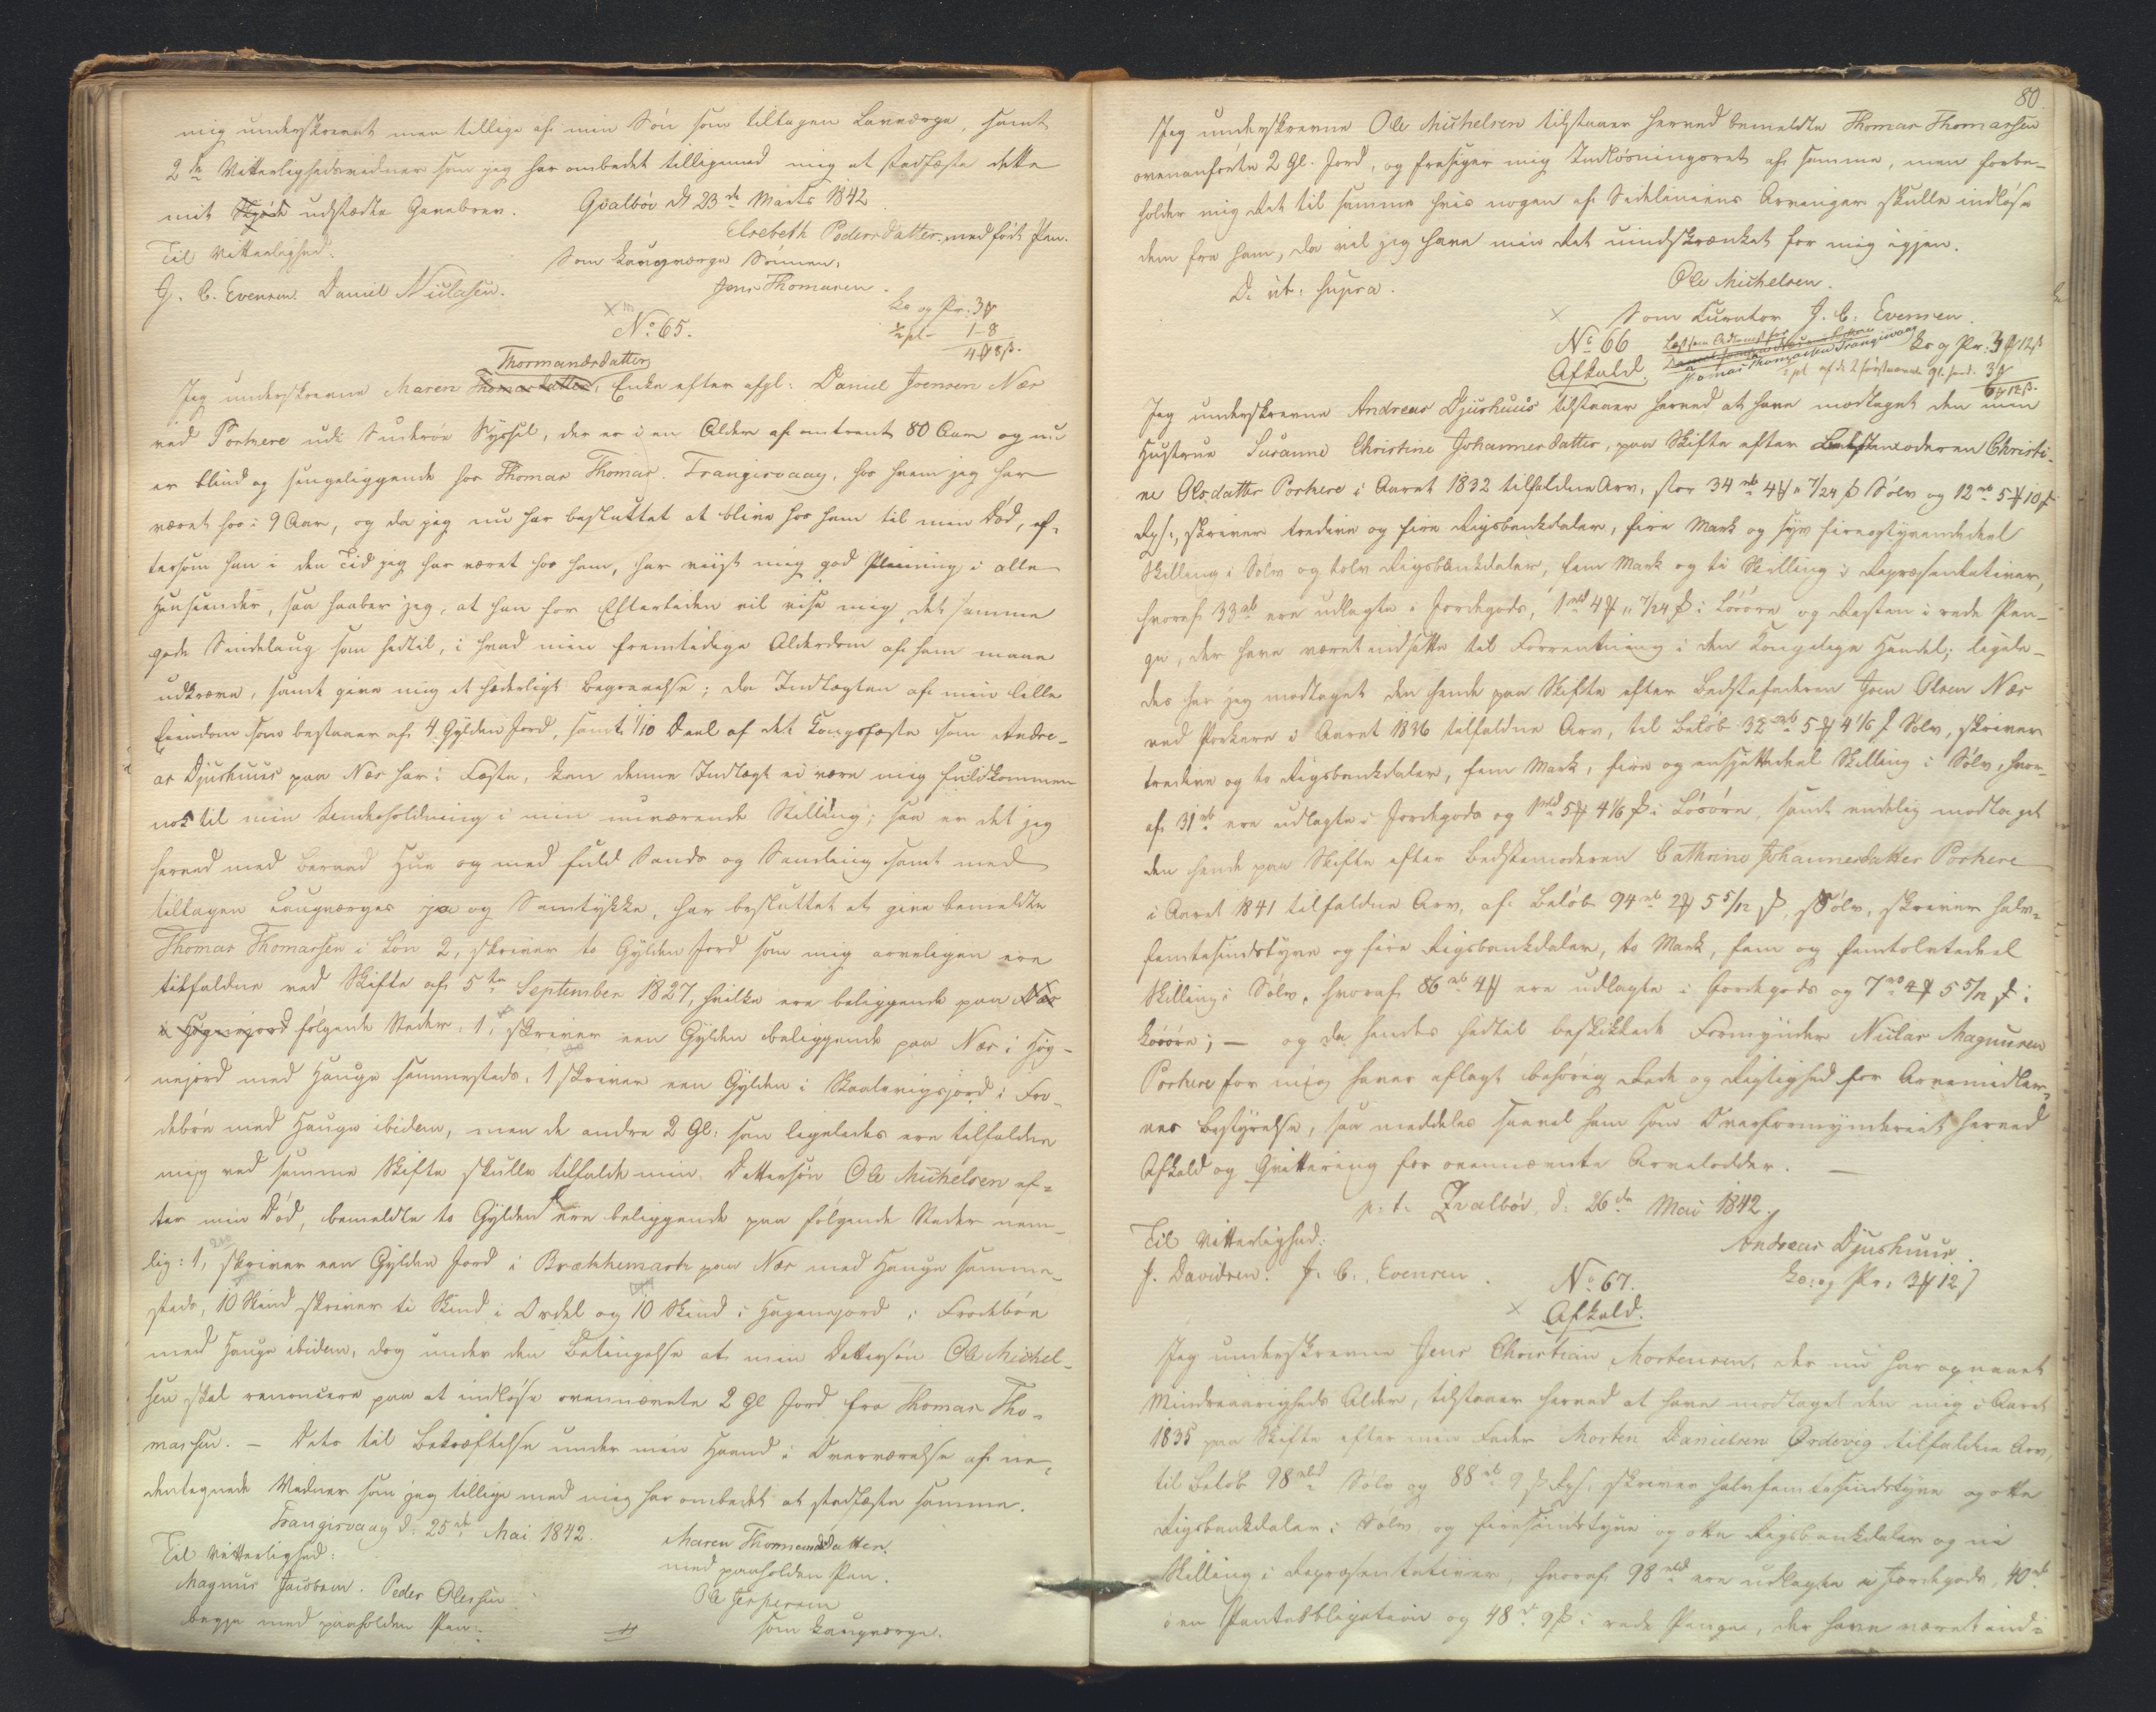 mig underskrevet men tillige af min Søn som tiltagen Lauværge, samt
2de Vitterlighedsvidner som jeg har ombedet tilligemed mig at stadfæste dette
mit Skjøde udstædte Gavebrev. Qvalbøe d. 23de Marts 1842
Elsebeth Pedersdatter med ført Pen.
Til Vitterlighed: Som Laugværge Sønnen,
J. C. Evensen. Daniel Niclasen. Jens Thomasen.
No 65. Ls og Pr: 3 
1-8
4 8 ß.
Thormandsdatter
Jeg underskrevne Maren Thomasdatter, Enke efter afgl: Daniel Joensen Næs
ved Porkere udi Suderøe Syssel, der er i en Alder af omtrent 80 Aar og nu
er blind og sengeliggende hos Thomas Thomas. Trangisvaag, hos hvem jeg har
været hos i 9 Aar, og da jeg nu har besluttet at blive hos ham til min Død, ef-
tersom han i den Tid jeg har været hos ham, har viist mig god Pleining i alle
Henseender, saa haaber jeg, at han for Eftertiden vil vise mig det samme
gode Sindelaug som hidtil, i hvad min fremtidige Alderdom af ham maae
udkræve, samt give mig et hæderligt Begravelse; da Indtægten af min lille
Eiendom som bestaaer af 4 Gylden Jord, samt 1/10 Deel af det Kongsfæste som Andre-
as Djurhuus paa Næs har i Fæste, kan denne Indtægt ei være mig fuldkommen
nok til min Underholdning i min nuværende Stilling; saa er det jeg
herved med beraad Hue og med fuld Sands og Samling samt med
tiltagen Laugværges ja og Samtykke, har besluttet at give bemeldte
Thomas Thomassen i Løn 2, skriver to Gylden Jord som mig arveligen ere
tilfaldne ved Skifte af 5te September 1827, hvilke ere beliggende paa Næs
i Høgnejord følgende Steder: 1, skriver een Gylden beliggende paa Næs i Høg-
nejord med Hauge sammesteds, 1 skriver een Gylden i Skaalevigsjord i Fro-
debøe med Hauge ibidem, men de andre 2 Gl: som ligeledes ere tilfaldne
mig ved samme Skifte skulle tilfalde min Dattersøn Ole Michelsen ef-
ter min Død, bemeldte to Gylden ere beliggende paa følgende Steder nem-
lig: 1, skriver een Gylden Jord i Brækkemark paa Næs med Hauge samme-
steds, 10 Skind skriver ti Skind i Ordel og 10 Skind i Hegnejord i Frodebøe
med Hauge ibidem, dog under den Betingelse at min Dattersøn Ole Michel-
sen skal renoncere paa at indløse ovennævnte 2 Gl Jord fra Thomas Tho-
massen. – Dets til Bekræftelse under min Haand i Overværelse af ne-
dentegnede Vidner som jeg tillige med mig har ombedet at stadfæste samme.
Trangisvaag d: 25de Mai 1842. Maren Thormandsdatter.
Til Vitterlighed: med paaholden Pen.
Magnus Jacobsen. Peder Olessen Ole Jespersen
begge med paaholden Pen. som Laugværge.
80.
Jeg underskrevne Ole Michelsen tilstaaer herved bemeldte Thomas Thomassen
ovenanførte 2 Gl. Jord, og frasiger mig Indløsningsret af samme, men forbe-
holder mig Ret til samme hvis nogen af Sidelinienes Arvinger skulle indløse
dem fra ham, da vil jeg have min Ret uindskrænket for mig igjen.
D. ut. supra. Ole Michelsen.
Som Curator J. C. Evensen.
No 66 Ls og Pr: 3 12 ß
Afkald. Thomas Thomassen Trangisvaag
Jeg underskrevne Andreas Djurhuus tilstaaer herved at have modtaget den min
Hustrue Susanne Christine Johannesdatter, paa Skifte efter Bedstemoderen Christi-
ne Olsdatter Porkere i Aaret 1832 tilfaldne Arv, stor 34 rb 4 " 7/24 ß Sølv og 12 rb 5 10 ß
Rps:, skriver tredive og fire Rigsbankdaler, fire Mark og syv fireogtyvendedeel
Skilling i Sølv og tolv Rigsbankdaler, fem Mark og ti Skilling i Repræsentativer,
hvoraf 33 rb ere udlagte i Jordegods, 1 rbd 4 " 7/24 ß i Løsøre og Resten i rede Pen-
ge, der have været indsatte til Forrentning i den Kongelige Handel; ligele-
des har jeg modtaget den hende paa Skifte efter Bedstefaderen Joen Olsen Næs
ved Porkere i Aaret 1836 tilfaldne Arv, til Beløb 32 rb 5 4 1/6 ß Sølv, skriver
tredive og to Rigsbankdaler, fem Mark, fire og ensjettedeel Skilling i Sølv, hvor-
af 31 rb ere udlagte i Jordegods og 1 rbd 5 4 1/6 ß i Løsøre, samt endelig modtaget
den hende paa Skifte efter Bedstemoderen Cathrine Johannesdatter Porkere
i Aaret 1841 tilfaldne Arv, af Beløb 94 rb 2 5 5/12 ß, Sølv, skriver halv-
femtesindstyve og fire Rigsbankdaler, to Mark, fem og femtolvtedeel
Skilling i Sølv, hvoraf 86 rb 4 ere udlagte i Jordegods og 7 rb 4 5 5/12 ß i
Løsøre; – og da hendes hidtil beskikkede Formynder Niclas Magnusen
Porkere for mig haver aflagt behørig Rede og Rigtighed for Arvemidler-
nes Bestyrelse, saa meddeles saavel ham som Overformynderiet herved
Afkald og Qvittering for ovennævnte Arvelodder. –
p. t. Qvalbøe, d: 26de Mai 1842.
Til Vitterlighed: Andreas Djurhuus.
J. Davidsen. J. C. Evensen.
No 67. Ls og Pr. 3 12
Afkald.
Jeg underskrevne Jens Christian Mortensen, der nu har opnaaet
Mindreaarigheds Alder, tilstaaer herved at have modtaget den mig i Aaret
1835 paa Skifte efter min Fader Morten Danielsen Ørdevig tilfaldne Arv,
til Beløb 98 rbd Sølv og 88 rb 9 ß Rps: skriver halvfemtesindstyve og otte
Rigsbankdaler i Sølv og firesindstyve og otte Rigsbankdaler og ni
Skilling i Repræsentativer, hvoraf 98 rbd ere udlagte i Jordegods, 40 rb
i en Pantobligation og 48 rb 9 ß i rede Penge, der have været ind-